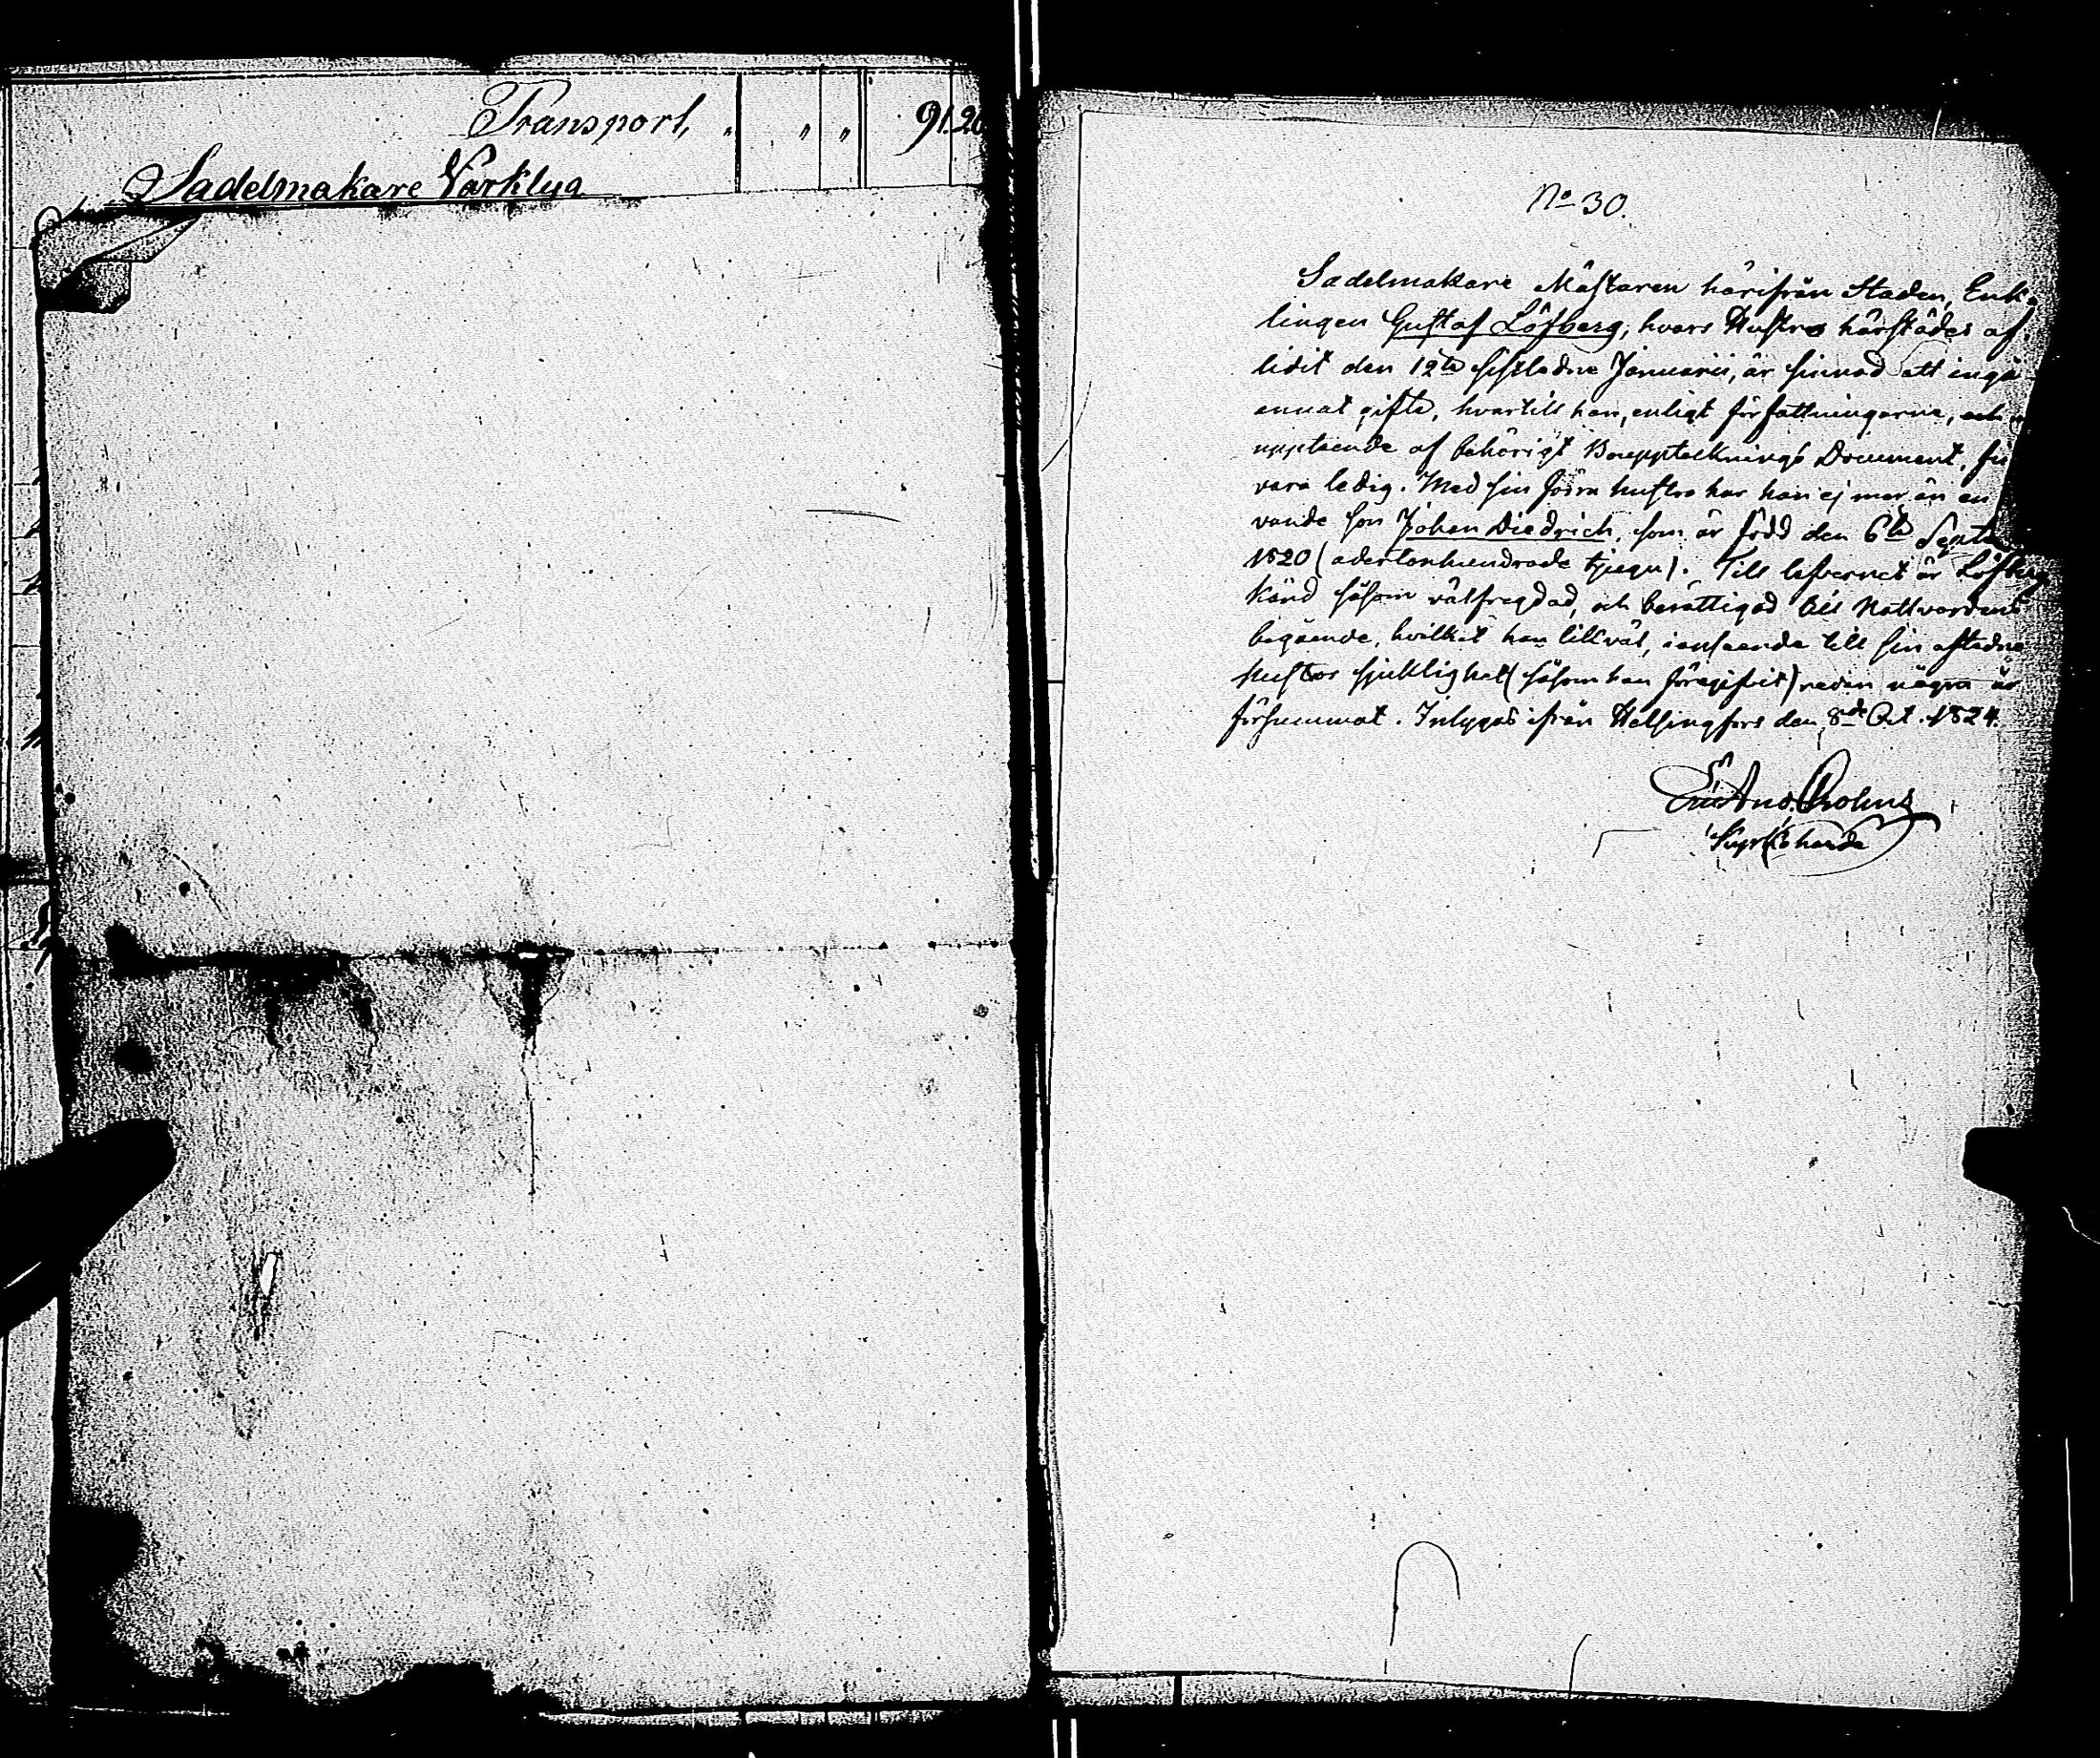 Transport, " " " 91.20
Sadelmakare Verktyg
No 30.
Sadelmakare Mästaren härifrån Staden, Enk-
lingen Gustaf Löfberg, hvars Hustro härstädes af-
lidit den 12te sistledne Januarii, är sinnad att ingå
annat gifte, hvartill han, enligt författningarne, och
uppteende af behörigt Boupptecknings Document,
vara ledig. Med sin förra hustro har han ej mer än en
vande son Johan Diedrich, som är född den 6te Septe
1820 (adertonhundrade tjugu). Till lefvernet är Löfberg
känd såsom välfregdad, och berättigad till Nattvardens
begående, hvilket han likväl, i anseende till sin afledne
hustros sjuklighet (såsom han föregifvit) redan några år
försummat. Intygas ifrån Helsingfors den 8de Oct. 1824.
Kyrkoherde